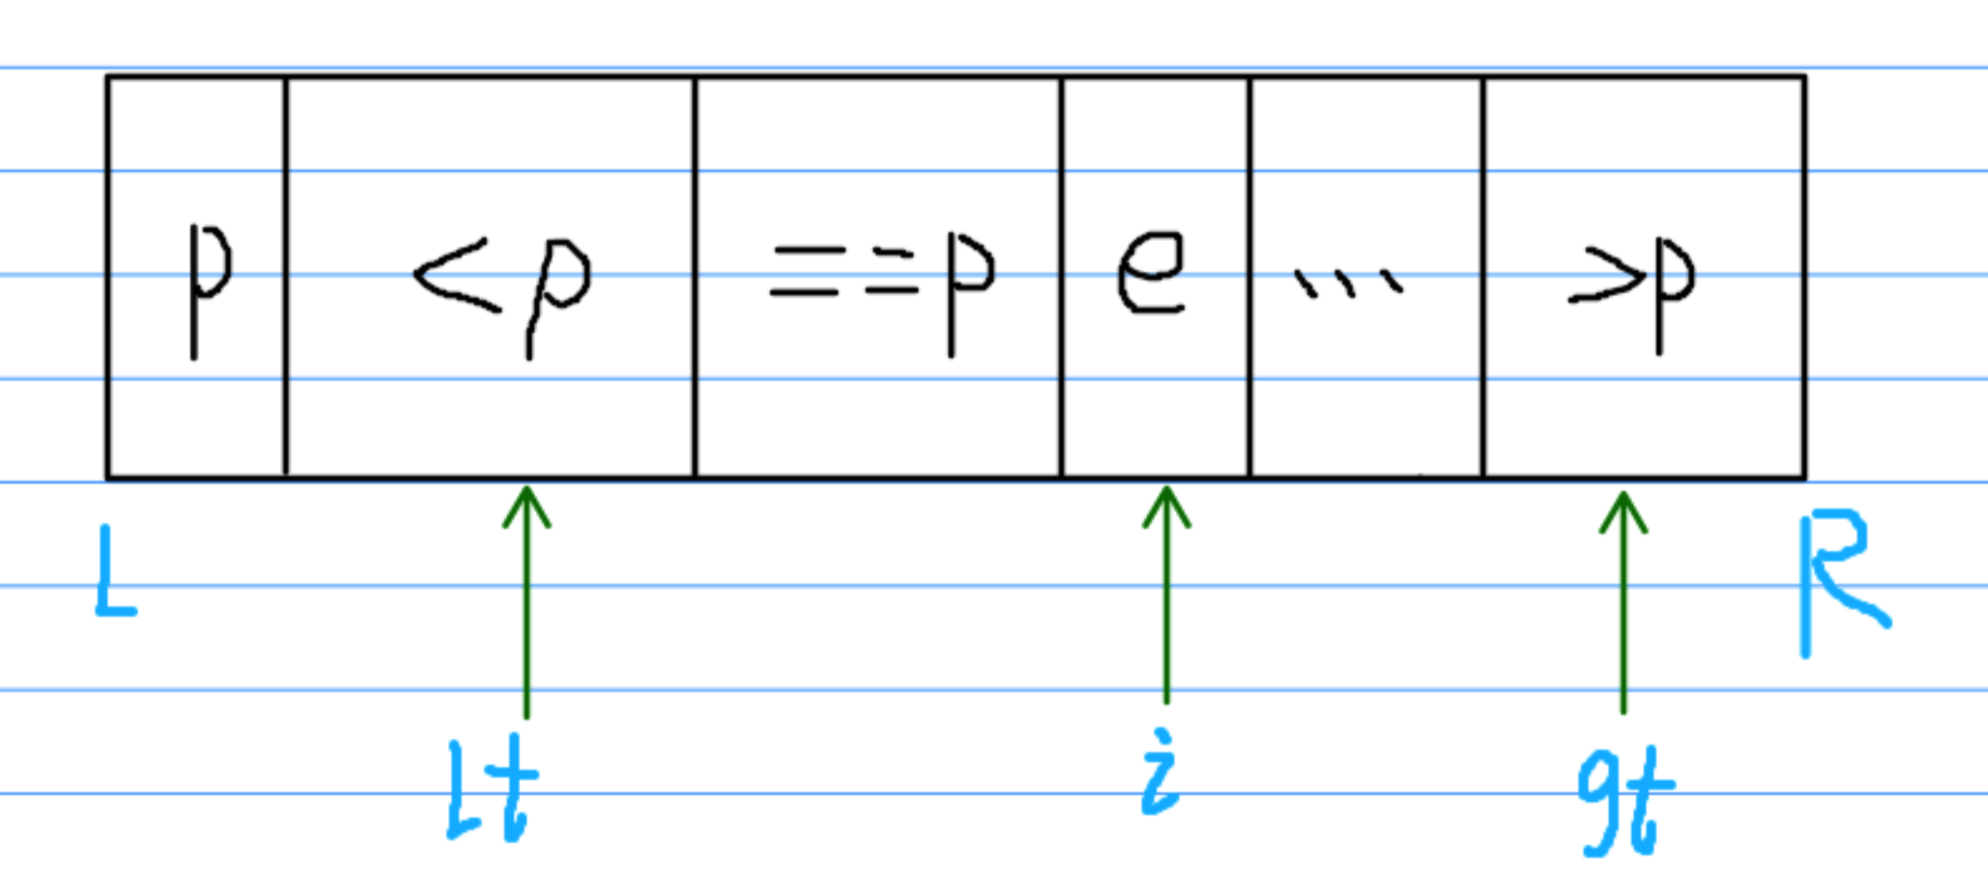 p <p ==p e ... >p
L R
lt i gt